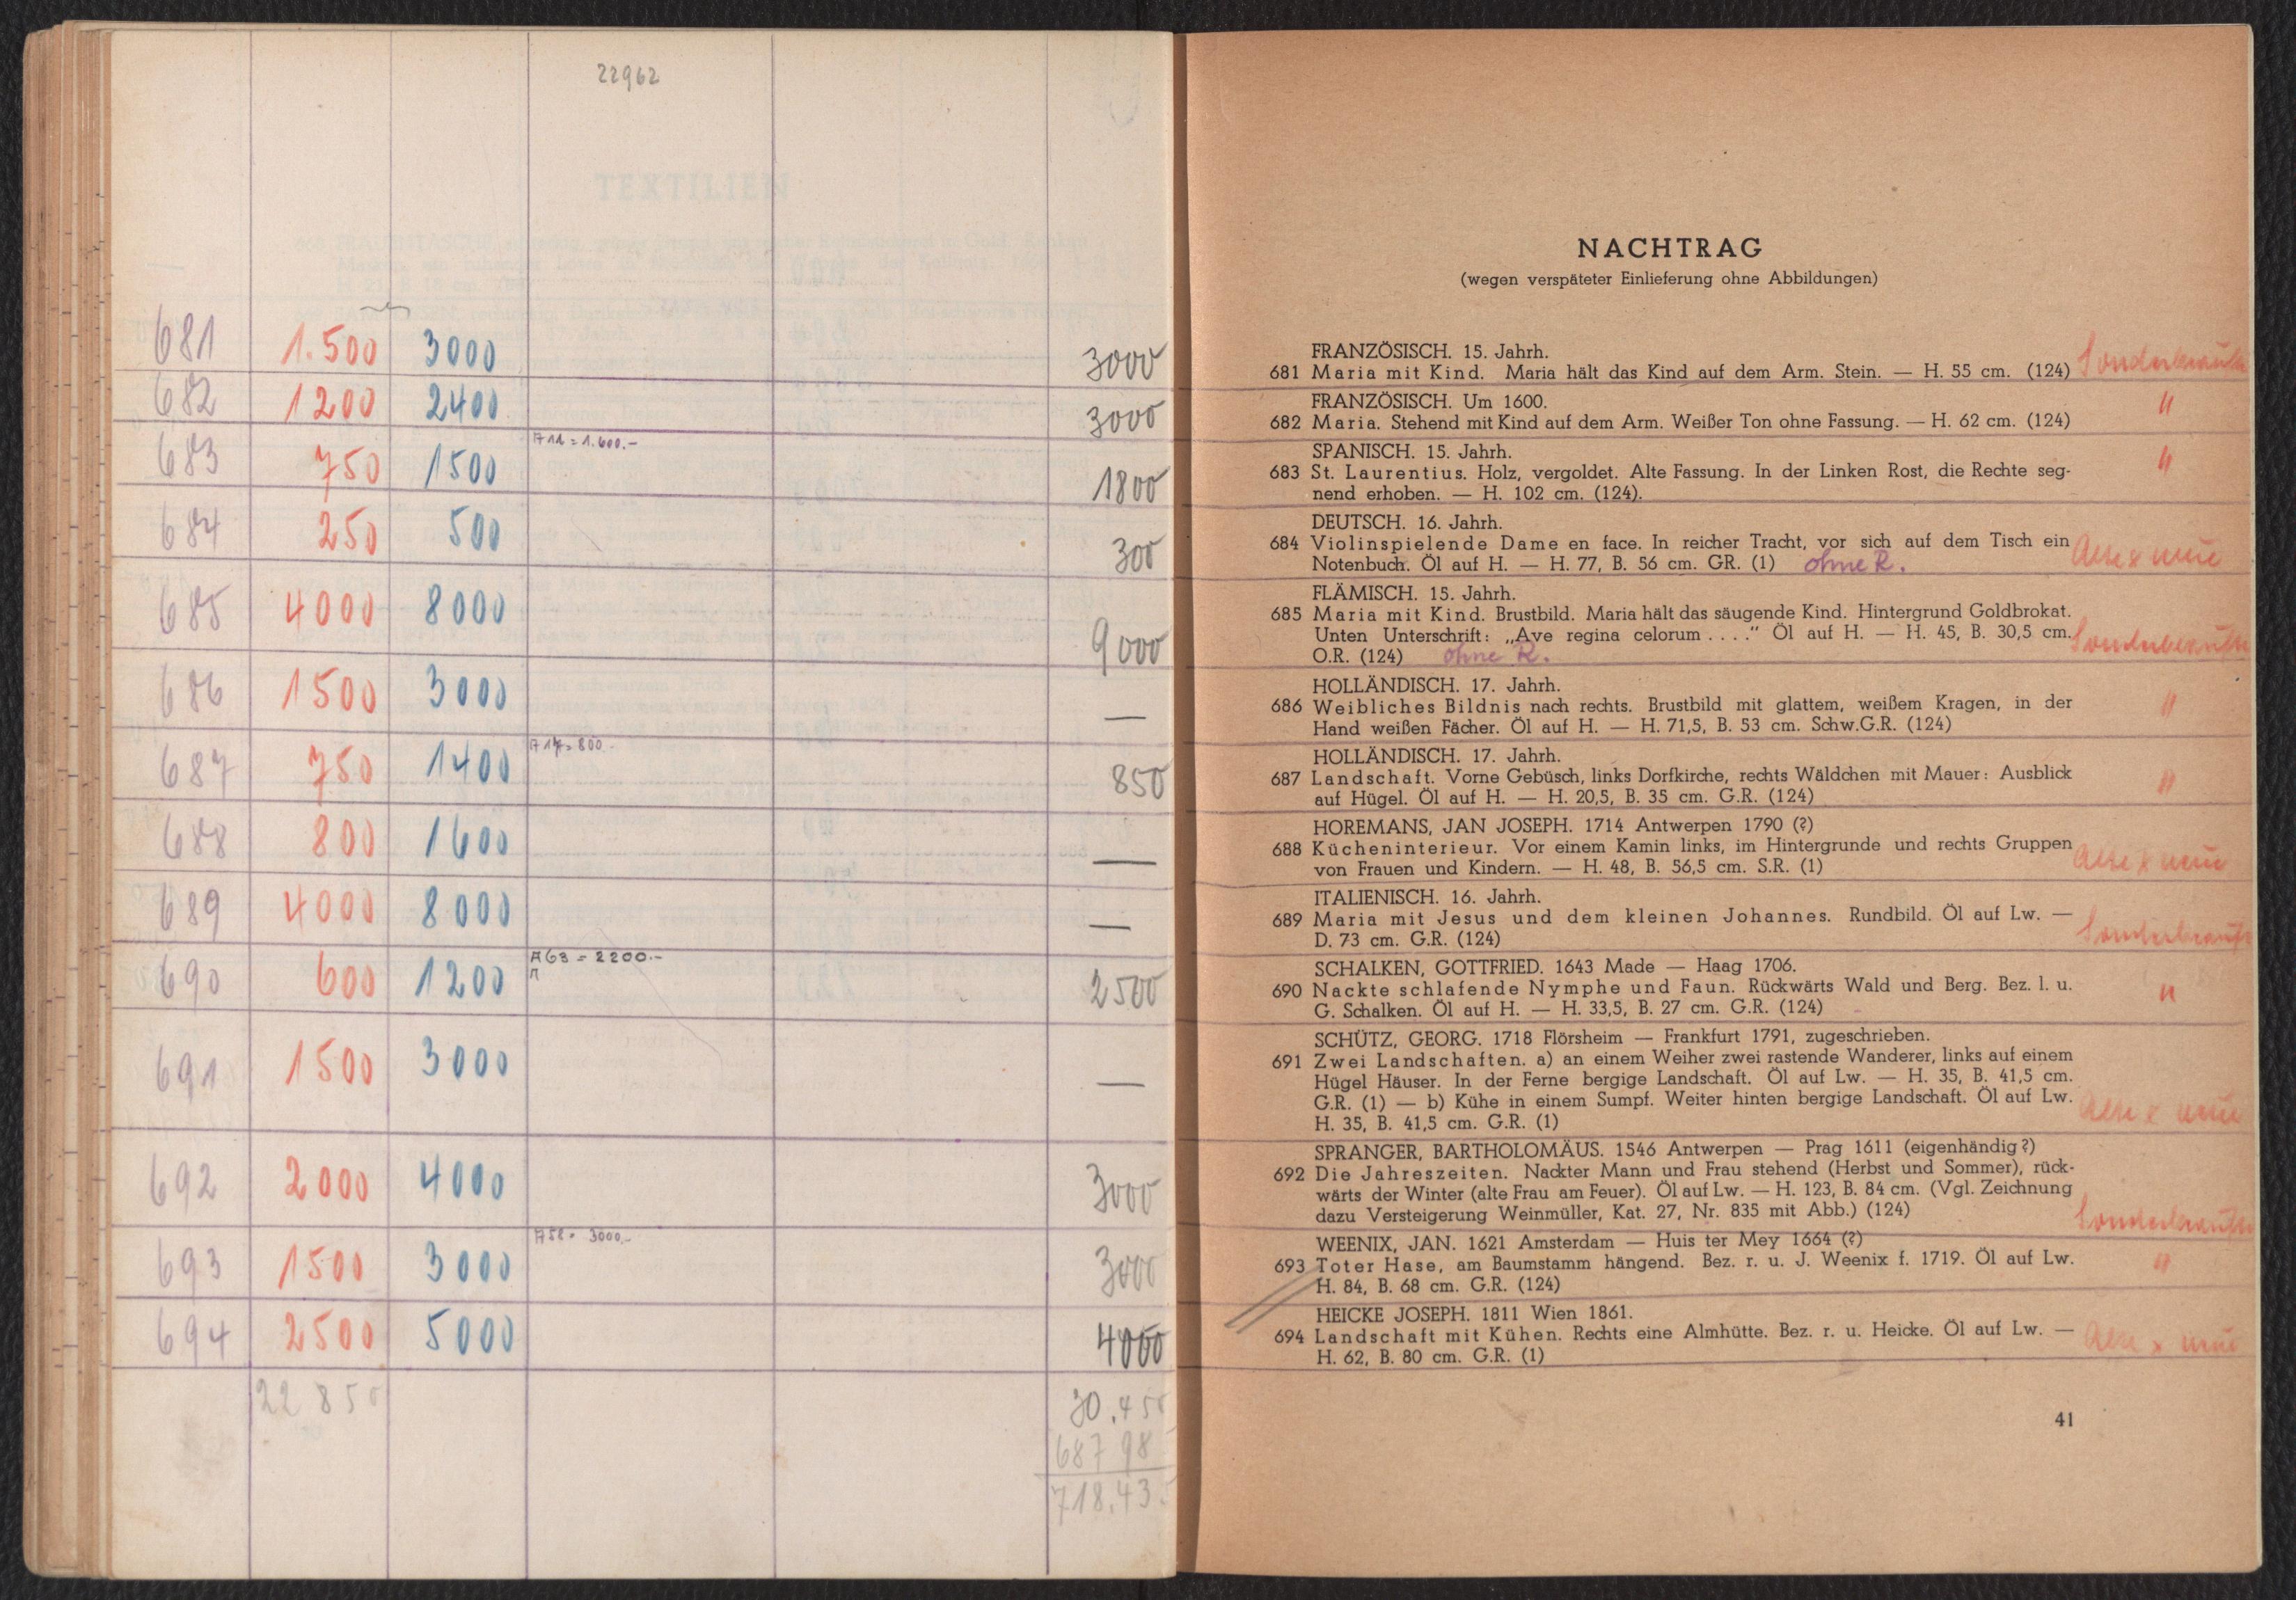 22962
681 1.500 3000 3000
682 1200 2400 3000
683 750 1500 A11 = 1.600.- 1800
684 250 500 300
685 4000 8000 9000
686 1500 3000 —
687 750 1400 A17 = 800.- 850
688 800 1600 —
689 4000 8000 —
690 600 1200 A63 = 2200.- 2500
691 1500 3000 —
692 2000 4000 3000
693 1500 3000 A58 = 3000.- 3000
694 2500 5000 4000
22850 30.450
68798
718.43
NACHTRAG
(wegen verspäteter Einlieferung ohne Abbildungen)
FRANZÖSISCH. 15. Jahrh.
681 Maria mit Kind. Maria hält das Kind auf dem Arm. Stein. — H. 55 cm. (124)
FRANZÖSISCH. Um 1600. "
682 Maria. Stehend mit Kind auf dem Arm. Weißer Ton ohne Fassung. — H. 62 cm. (124)
SPANISCH. 15. Jahrh. "
683 St. Laurentius. Holz, vergoldet. Alte Fassung. In der Linken Rost, die Rechte seg-
nend erhoben. — H. 102 cm. (124).
DEUTSCH. 16. Jahrh.
684 Violinspielende Dame en face. In reicher Tracht, vor sich auf dem Tisch ein
Notenbuch. Öl auf H. — H. 77, B. 56 cm. GR. (1) ohne R. Alte & neue
FLÄMISCH. 15. Jahrh.
685 Maria mit Kind. Brustbild. Maria hält das säugende Kind. Hintergrund Goldbrokat.
Unten Unterschrift: „Ave regina celorum . . . ." Öl auf H. — H. 45, B. 30,5 cm.
O.R. (124) ohne R.
HOLLÄNDISCH. 17. Jahrh.
686 Weibliches Bildnis nach rechts. Brustbild mit glattem, weißem Kragen, in der "
Hand weißen Fächer. Öl auf H. — H. 71,5, B. 53 cm. Schw.G.R. (124)
HOLLÄNDISCH. 17. Jahrh.
687 Landschaft. Vorne Gebüsch, links Dorfkirche, rechts Wäldchen mit Mauer: Ausblick "
auf Hügel. Öl auf H. — H. 20,5, B. 35 cm. G.R. (124)
HOREMANS, JAN JOSEPH. 1714 Antwerpen 1790 (?)
688 Kücheninterieur. Vor einem Kamin links, im Hintergrunde und rechts Gruppen
von Frauen und Kindern. — H. 48, B. 56,5 cm. S.R. (1) Alte & neue
ITALIENISCH. 16. Jahrh.
689 Maria mit Jesus und dem kleinen Johannes. Rundbild. Öl auf Lw. —
D. 73 cm. G.R. (124)
SCHALKEN, GOTTFRIED. 1643 Made — Haag 1706.
690 Nackte schlafende Nymphe und Faun. Rückwärts Wald und Berg. Bez. l. u. "
G. Schalken. Öl auf H. — H. 33,5, B. 27 cm. G.R. (124)
SCHÜTZ, GEORG. 1718 Flörsheim — Frankfurt 1791, zugeschrieben.
691 Zwei Landschaften. a) an einem Weiher zwei rastende Wanderer, links auf einem
Hügel Häuser. In der Ferne bergige Landschaft. Öl auf Lw. — H. 35, B. 41,5 cm.
G.R. (1) — b) Kühe in einem Sumpf. Weiter hinten bergige Landschaft. Öl auf Lw. Alte & neue
H. 35, B. 41,5 cm. G.R. (1)
SPRANGER, BARTHOLOMÄUS. 1546 Antwerpen — Prag 1611 (eigenhändig?)
692 Die Jahreszeiten. Nackter Mann und Frau stehend (Herbst und Sommer), rück-
wärts der Winter (alte Frau am Feuer). Öl auf Lw. — H. 123, B. 84 cm. (Vgl. Zeichnung
dazu Versteigerung Weinmüller, Kat. 27, Nr. 835 mit Abb.) (124)
WEENIX, JAN. 1621 Amsterdam — Huis ter Mey 1664 (?)
693 Toter Hase, am Baumstamm hängend. Bez. r. u. J. Weenix f. 1719. Öl auf Lw. "
H. 84, B. 68 cm. G.R. (124)
HEICKE JOSEPH. 1811 Wien 1861.
694 Landschaft mit Kühen. Rechts eine Almhütte. Bez. r. u. Heicke. Öl auf Lw. — Alte & neue
H. 62, B. 80 cm. G.R. (1)
41